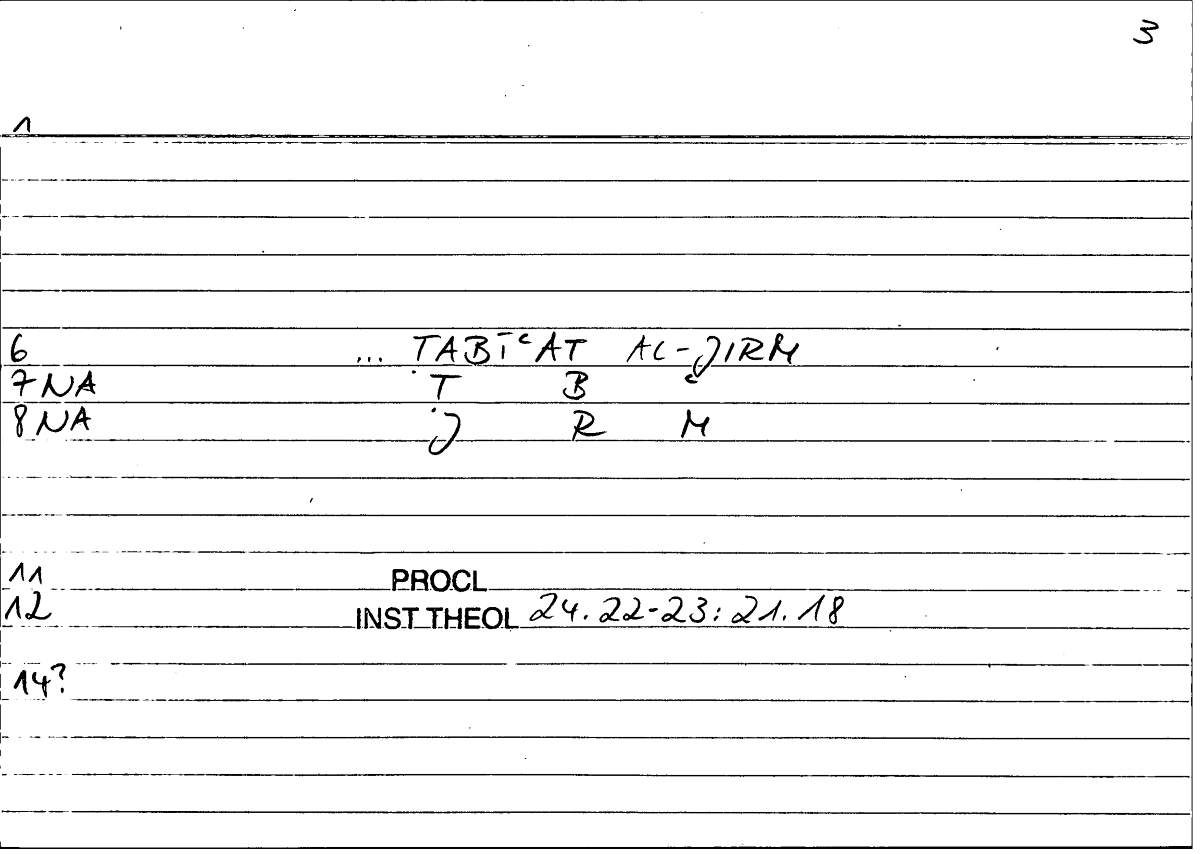 3
1
6 ... ṬABĪʿAT AL-JIRM
7 NA Ṭ B ʿ
8 NA J R M
11 PROCL
12 INST THEOL 24.22-23:21.18
14?